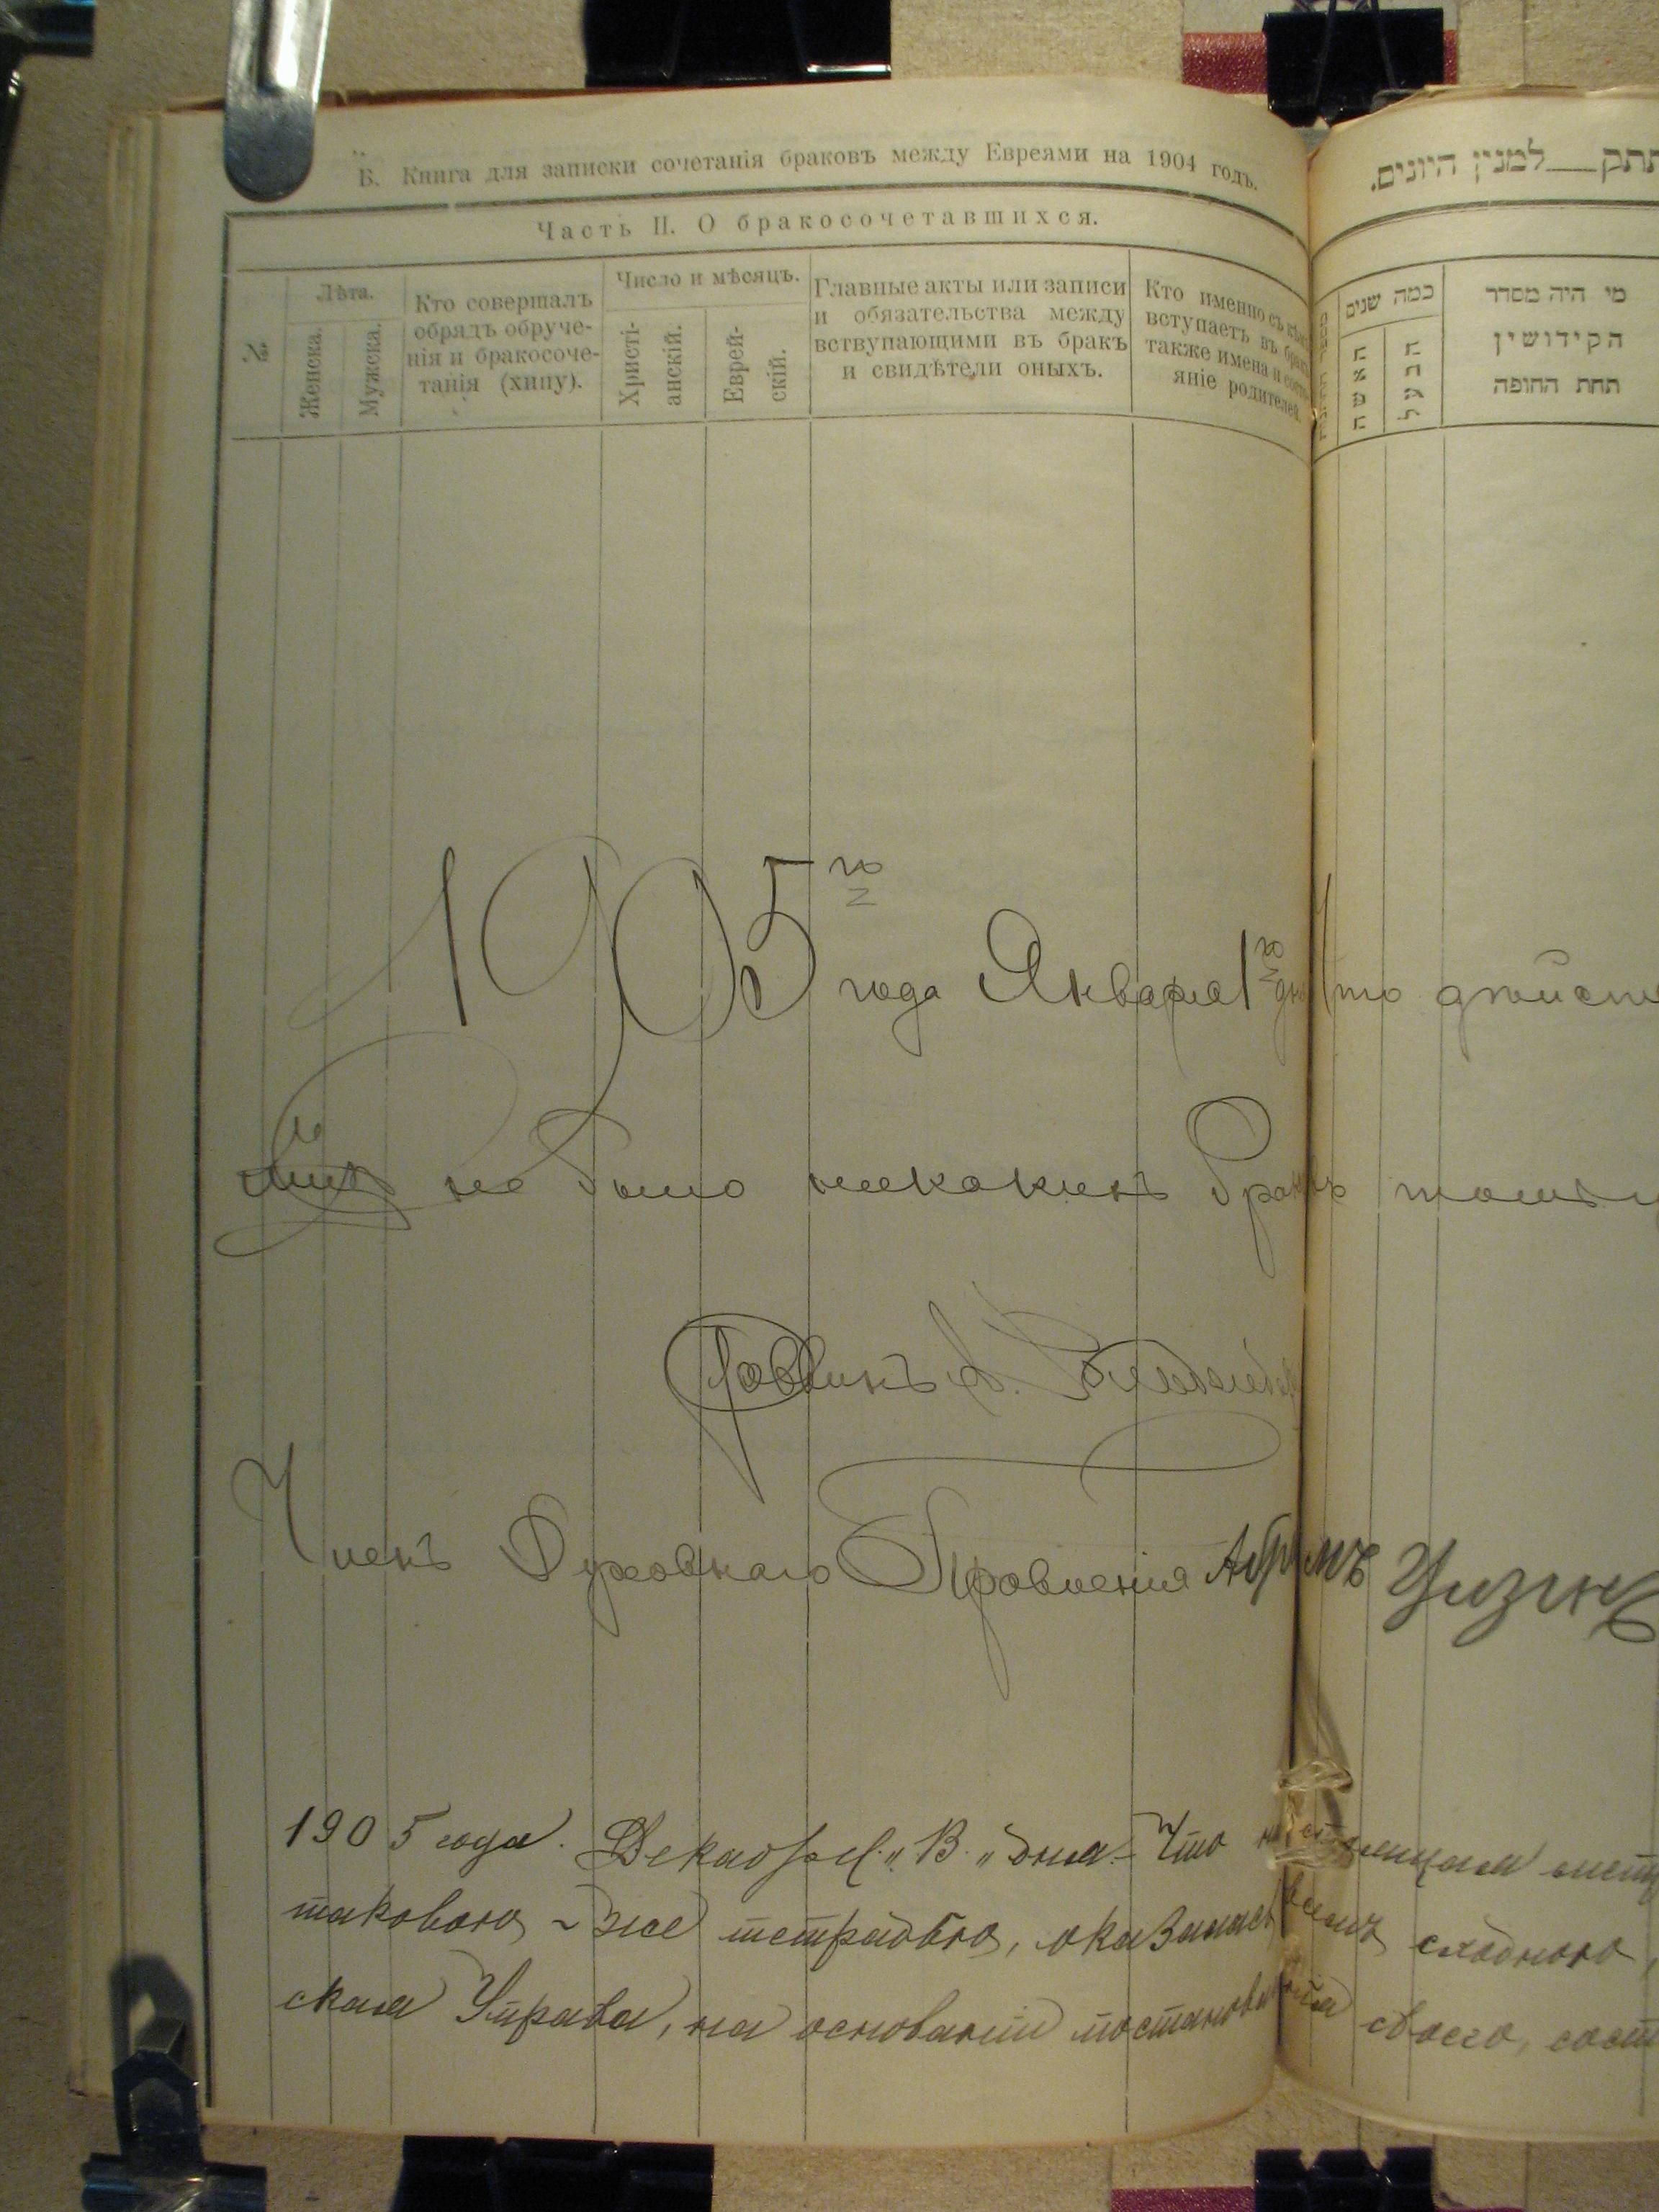 Б. Книга для записки сочетанія браковъ между Евреями на 1904 годъ.
Часть II. О бракосочетавшихся.
№
Лѣта.
Женска.
Мужска.
Кто совершалъ
обрядъ обруче-
нія и бракосоче-
танія (хипу).
Число и мѣсяцъ.
Христі-
анскій.
Еврей-
скій.
Главные акты или записи
и обязательства между
вствупающими въ бракъ
и свидѣтели оныхъ.
Кто именно съ кѣмъ
вступаетъ въ бракъ
также имена и состо-
яніе родителей.
למנין היונים.
כמה שנים
האשה
הבעל
מי היה מסדר
הקידושין
תחת החופה
1905го года Января 1го дня Что
не было никакихъ
Раввинъ
Членъ Духовнаго Правленія Абрамъ
1905 года. Декабря „13„ дня. Что
таковою же тетрадью, оказалась всемъ сходною,
ская Управа, на основаніи постановленія своего,